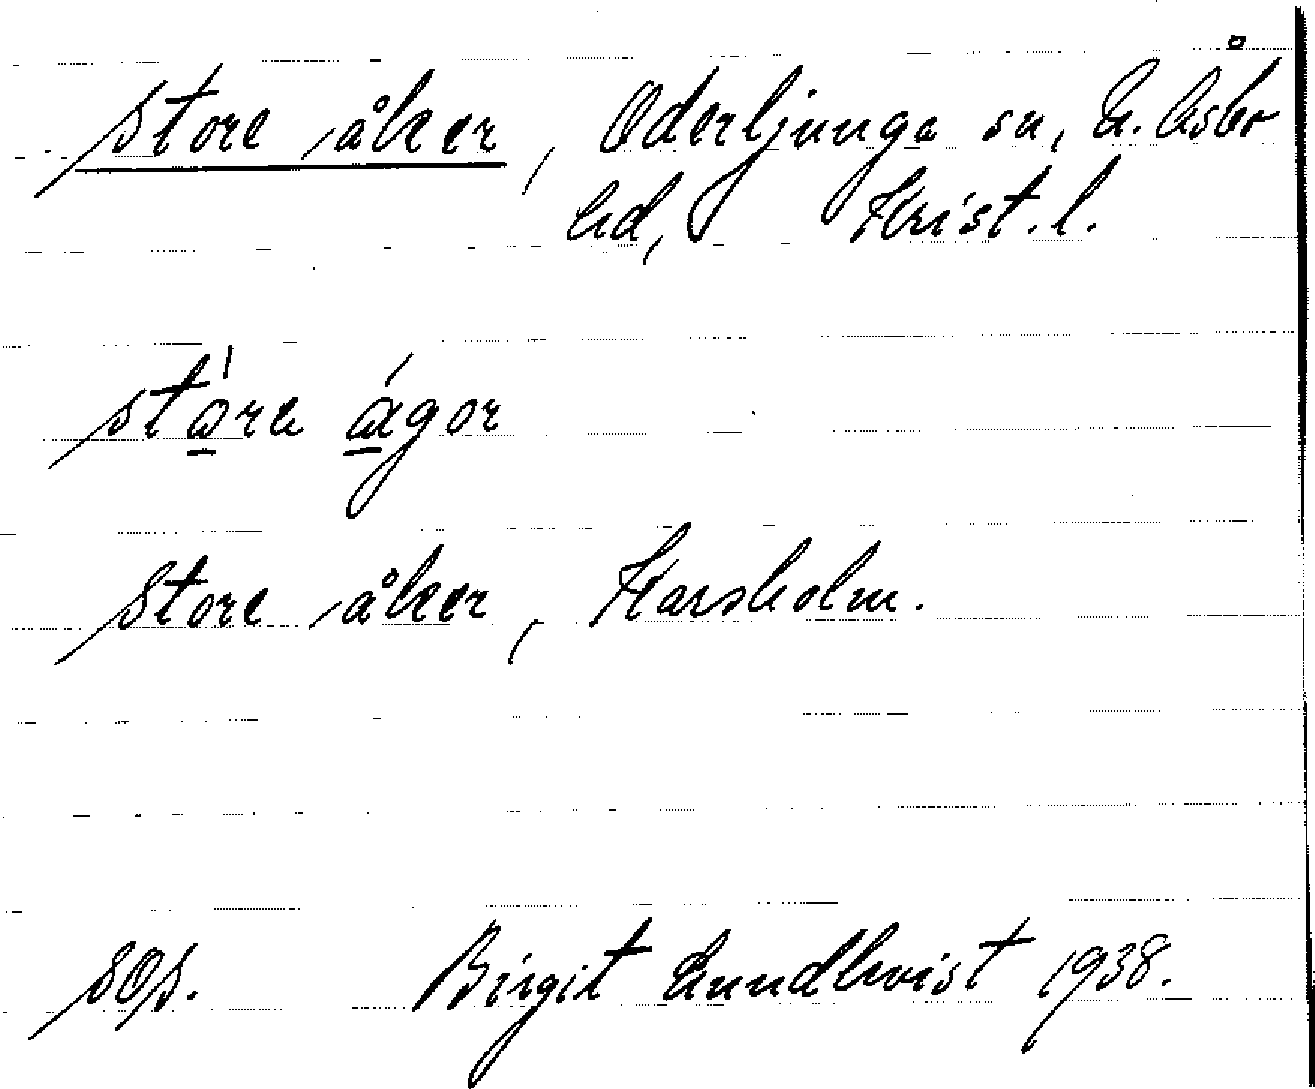 store åker, Oderljunga sn, N. Åsbo
hd, Krist. l.
stọ́re ágor
store åker, Karsholm.
sgs. Birgit Lundkvist 1938.